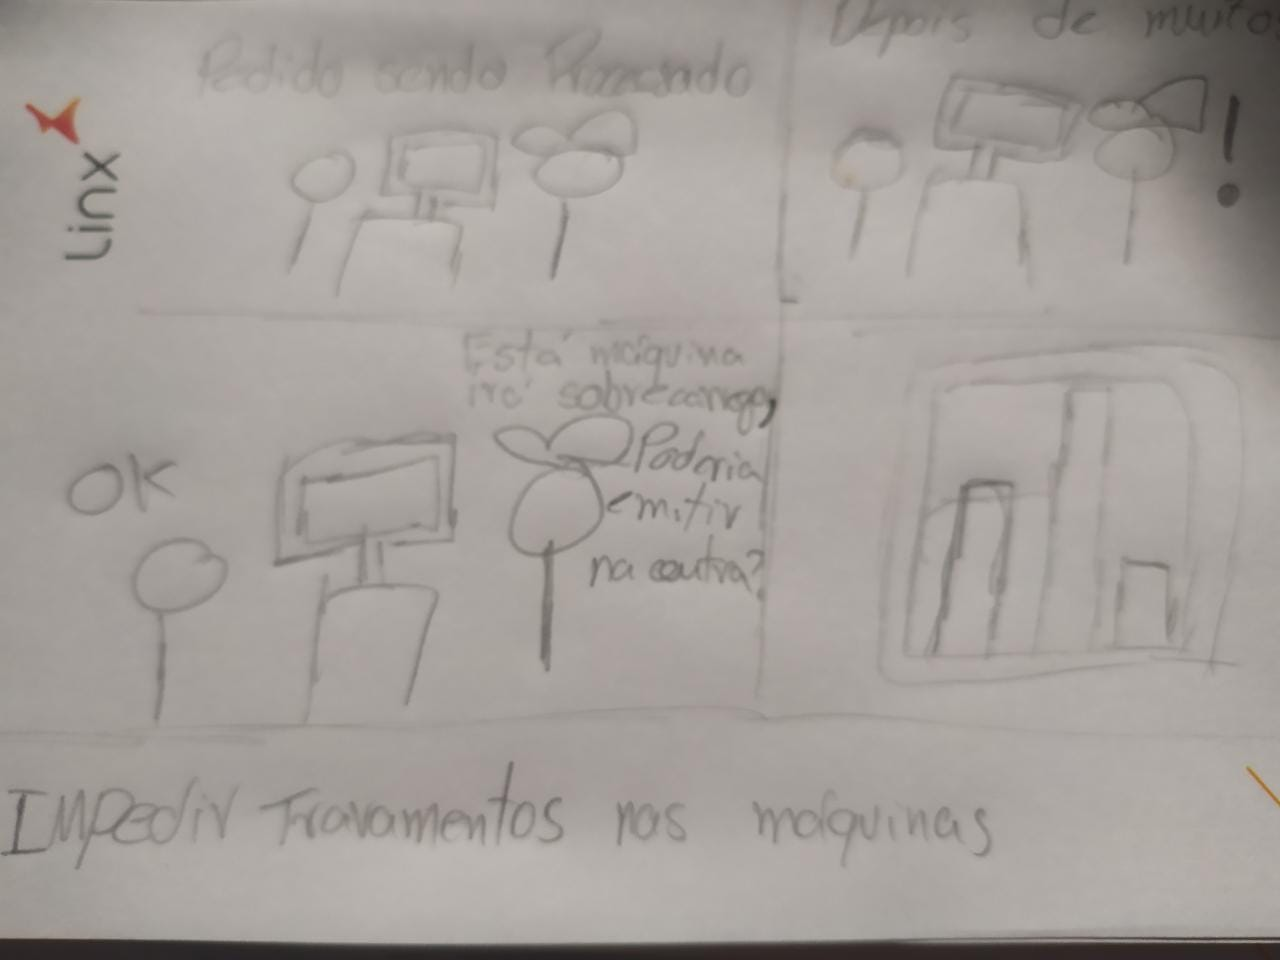 Linx
Pedido sendo Processado
Depois de muitos
!
Está máquina
irá sobrecarregar,
Poderia
emitir
na outra?
OK
Impedir Travamentos nas máquinas